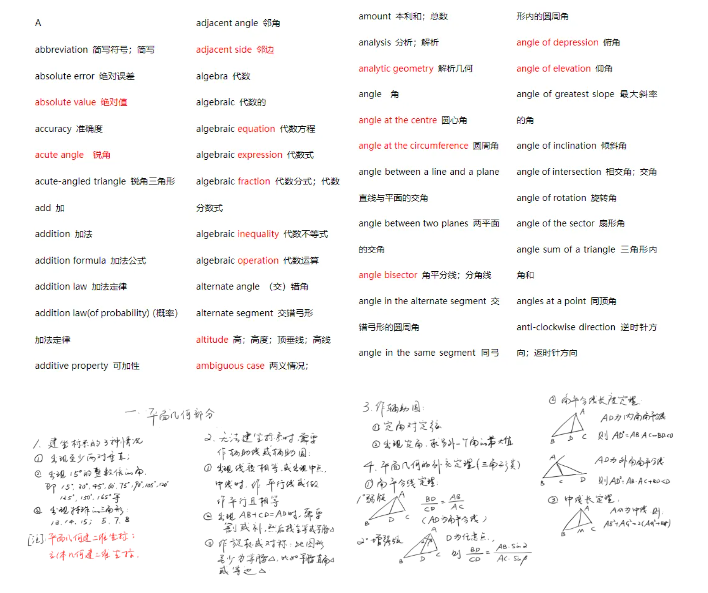 A
abbreviation 简写符号；简写
absolute error 绝对误差
absolute value 绝对值
accuracy 准确度
acute angle 锐角
acute-angled triangle 锐角三角形
add 加
addition 加法
addition formula 加法公式
addition law 加法定律
addition law(of probability) (概率)
加法定律
additive property 可加性
adjacent angle 邻角
adjacent side 邻边
algebra 代数
algebraic 代数的
algebraic equation 代数方程
algebraic expression 代数式
algebraic fraction 代数分式；代数
分数式
algebraic inequality 代数不等式
algebraic operation 代数运算
alternate angle （交）错角
alternate segment 交错弓形
altitude 高；高度；顶垂线；高线
ambiguous case 两义情况；
amount 本利和；总数
analysis 分析；解析
analytic geometry 解析几何
angle 角
angle at the centre 圆心角
angle at the circumference 圆周角
angle between a line and a plane
直线与平面的交角
angle between two planes 两平面
的交角
angle bisector 角平分线；分角线
angle in the alternate segment 交
错弓形的圆周角
angle in the same segment 同弓
形内的圆周角
angle of depression 俯角
angle of elevation 仰角
angle of greatest slope 最大斜率
的角
angle of inclination 倾斜角
angle of intersection 相交角；交角
angle of rotation 旋转角
angle of the sector 扇形角
angle sum of a triangle 三角形内
角和
angles at a point 同顶角
anti-clockwise direction 逆时针方
向；返时针方向
一. 平面几何部分
1. 建坐标系的3种情况
① 发现至少两对垂直；
② 发现15°的整数倍的角.
即15°, 30°, 45°, 60°, 75°, 90°, 105°, 120°
135°, 150°, 165°等
③ 发现特殊的三角形:
13. 14. 15; 5. 7. 8
[注] 平面几何建二维坐标;
立体几何建三维坐标.
2. 无法建坐标系时 需要
作辅助线或辅助圆:
① 发现线段相等,或发现中点,
中线时, 作平行线或
作平行且相等
② 发现AB+CD=AD时, 需要
割或补,
③ 作旋转或对称:
至少为等腰△,
或等边△
3. 作辅助圆:
① 定角对定弦
② 发现定角, 求另外一个角的最大值
4. 平面几何的补充定理(三角形)
① 角平分线定理
1°弱版 A B D C BD/CD = AB/AC
(AD为角平分线)
2°增强版 A B D C D为任意点,
则 BD/CD = AB·sinα/AC·sinβ
② 角平分线长度定理
A B D C AD为内角角平分线
则 AD²=AB·AC-BD·CD
A B C D AD为外角角平分线
则AD²=AB·AC+BD·CD
③ 中线长定理.
A B M C AM为中线 则